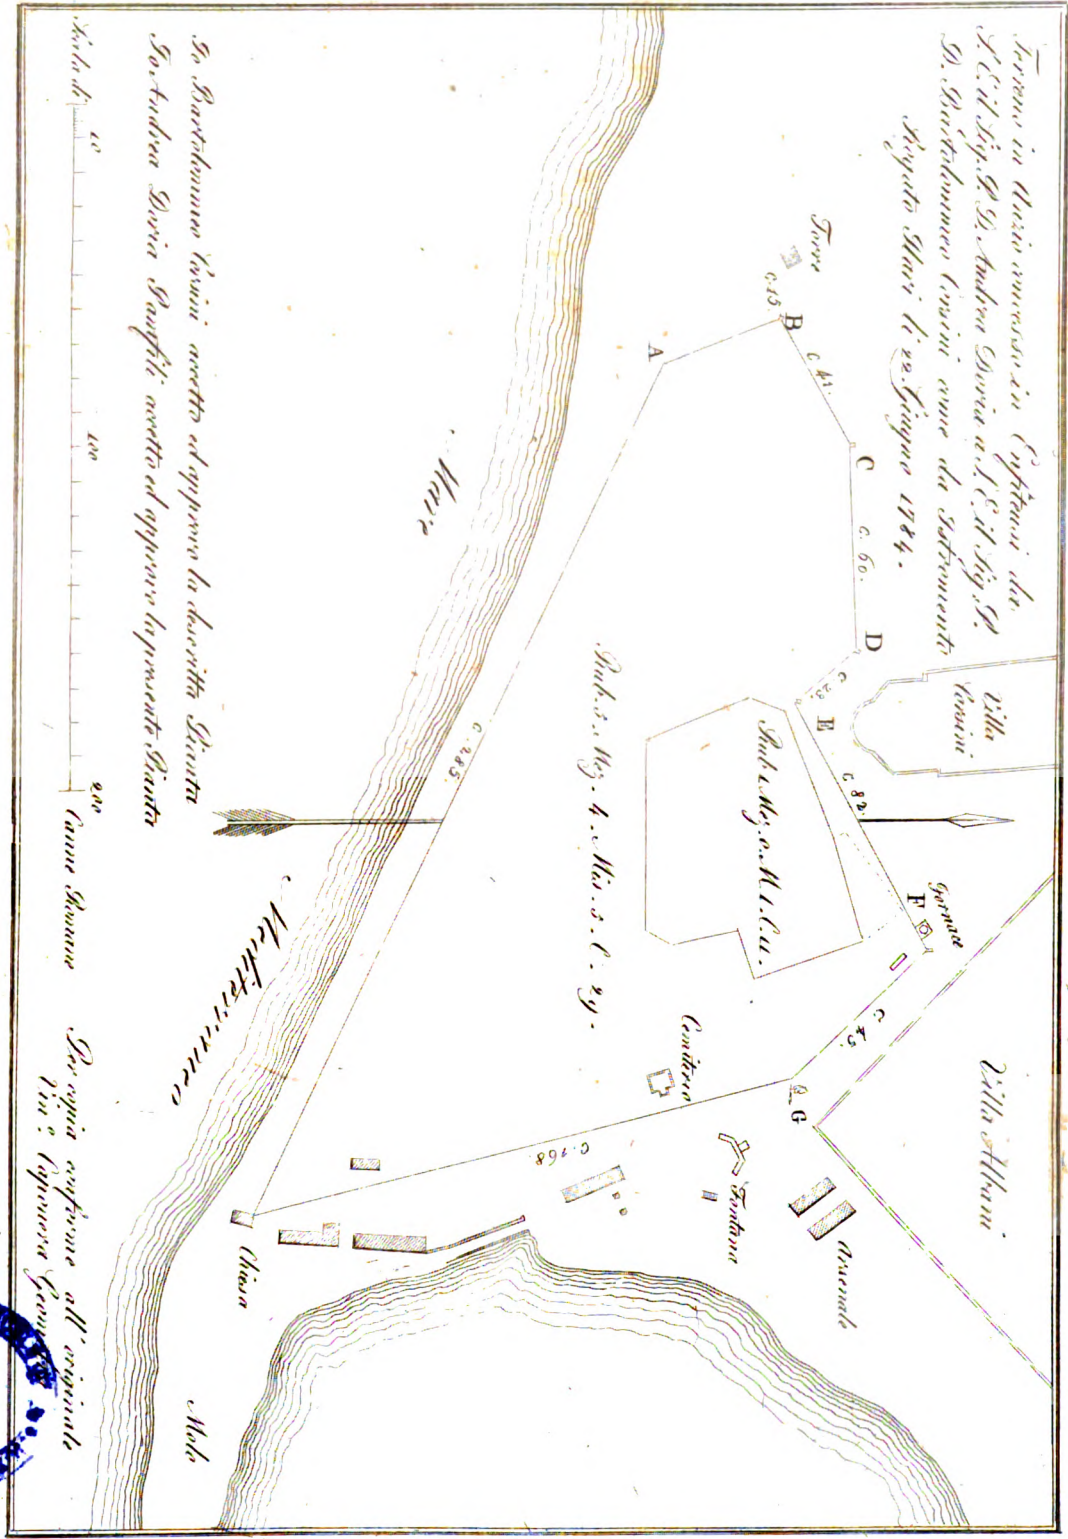 Terreno in Anzio concesso in Enfiteusi da
S. E. il Sig. P. D. Andrea Doria a S. E. il Sig. P.
D. Bartolommeo Corsini come da Istromento
Rogato Mari li 22. Giugno 1784.
Villa
Corsini
Villa Albani
Torre
B
C. 15
A
C. 41.
C
C. 60.
D
C. 23.
E
C. 82.
Fornace
F
C. 45.
G
Rub. 1. Mez. 0. M. 1. C. 11.
Rub. 5. Mez. 4. Mis. 3. C. 29.
Cemiterio
C. 168
Fontana
Arsenale
Chiesa
Molo
C. 285.
Mare
Mediterraneo
Io Bartolommeo Corsini accetto ed approvo la descritta Pianta
Io Andrea Doria Panfili accetto ed approvo la presente Pianta
Scala di 10 100 200 Canne Romane
Per copia conforme all' originale
Vin.º Caponera